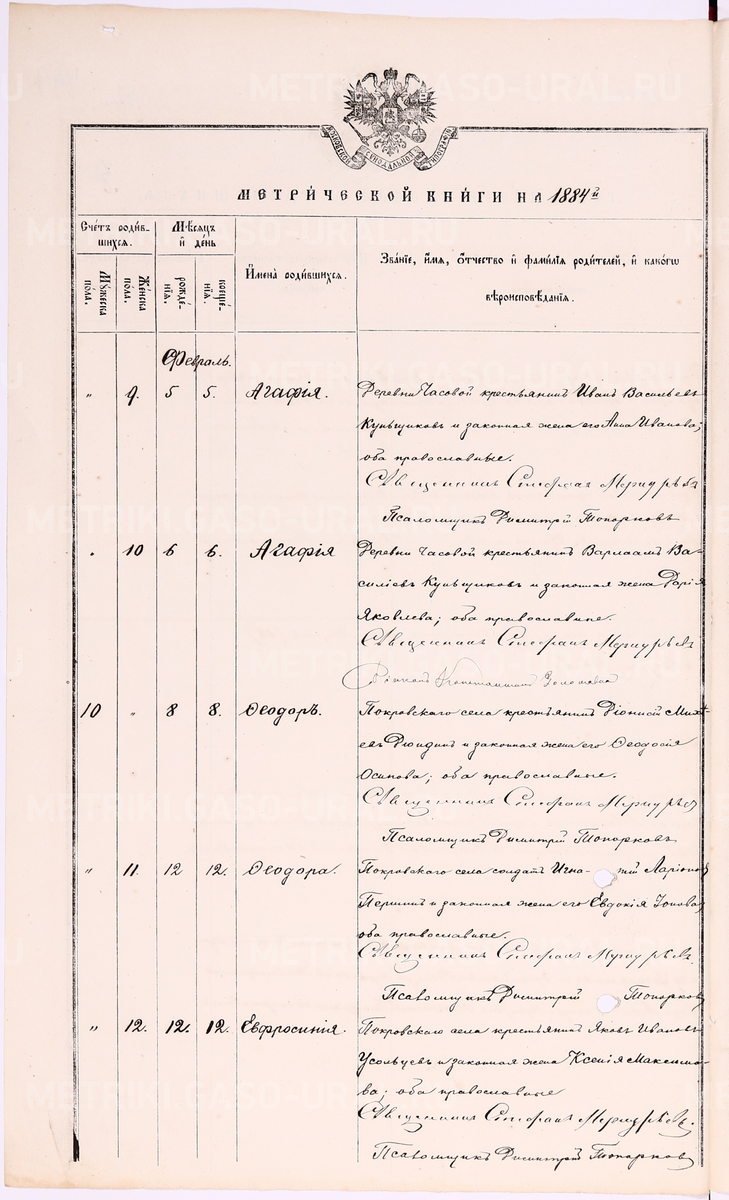 METRIKI.GASO-URAL.RU
МОСКОВСКОЙ СѴНОДАЛЬНОЙ ТИПОГРАФІИ
МЕТРИ́ЧЕСКОЙ КНИ́ГИ НА 1884й
Сче́тъ роди́в-
шихся.
Мꙋ́жеска по́ла.
Же́нска по́ла.
Мѣ́сяцъ и де́нь
рожде́-
нїя.
креще́-
нїя.
И҆мена̀ роди́вшихся.
Зва́нїе, и҆́мя, ѻ҆́тчество и҆ фами́лїя роди́телей, и҆ како́гѡ
вѣроисповѣ́данїя.
Февраль.
„ 9. 5 5. Агафія. Деревни Часовой крестьянинъ Иванъ Васильевъ
Куньщиковъ и законная жена его Анна Иванова;
оба православные.
Священникъ Стефанъ
Псаломщикъ Димитрій Топорковъ
„ 10 6 6. Агафія Деревни Часовой крестьянинъ Варлаамъ Ва-
силіевъ Куньщиковъ и законная жена Дарія
Яковлева; оба православные.
Священникъ Стефанъ
Діаконъ Константинъ
10 „ 8 8. Ѳеодоръ. Покровскаго села крестьянинъ Діонисій Михѣ-
евъ Дюдинъ и законная жена его Ѳеодосія
Осипова; оба православные.
Священникъ Стефанъ
Псаломщикъ Димитрій Топорковъ
„ 11. 12 12. Ѳеодора. Покровскаго села солдатъ Игна-тій Ларіоновъ
Першинъ и законная жена его Евдокія Іонова;
оба православные.
Священникъ Стефанъ
Псаломщикъ Димитрій Топорковъ
„ 12. 12. 12. Евфросинія. Покровскаго села крестьянинъ Яковъ Ивановъ
Усольцевъ и законная жена Ксенія Максимо-
ва; оба православные
Священникъ Стефанъ
Псаломщикъ Димитрій Топорковъ